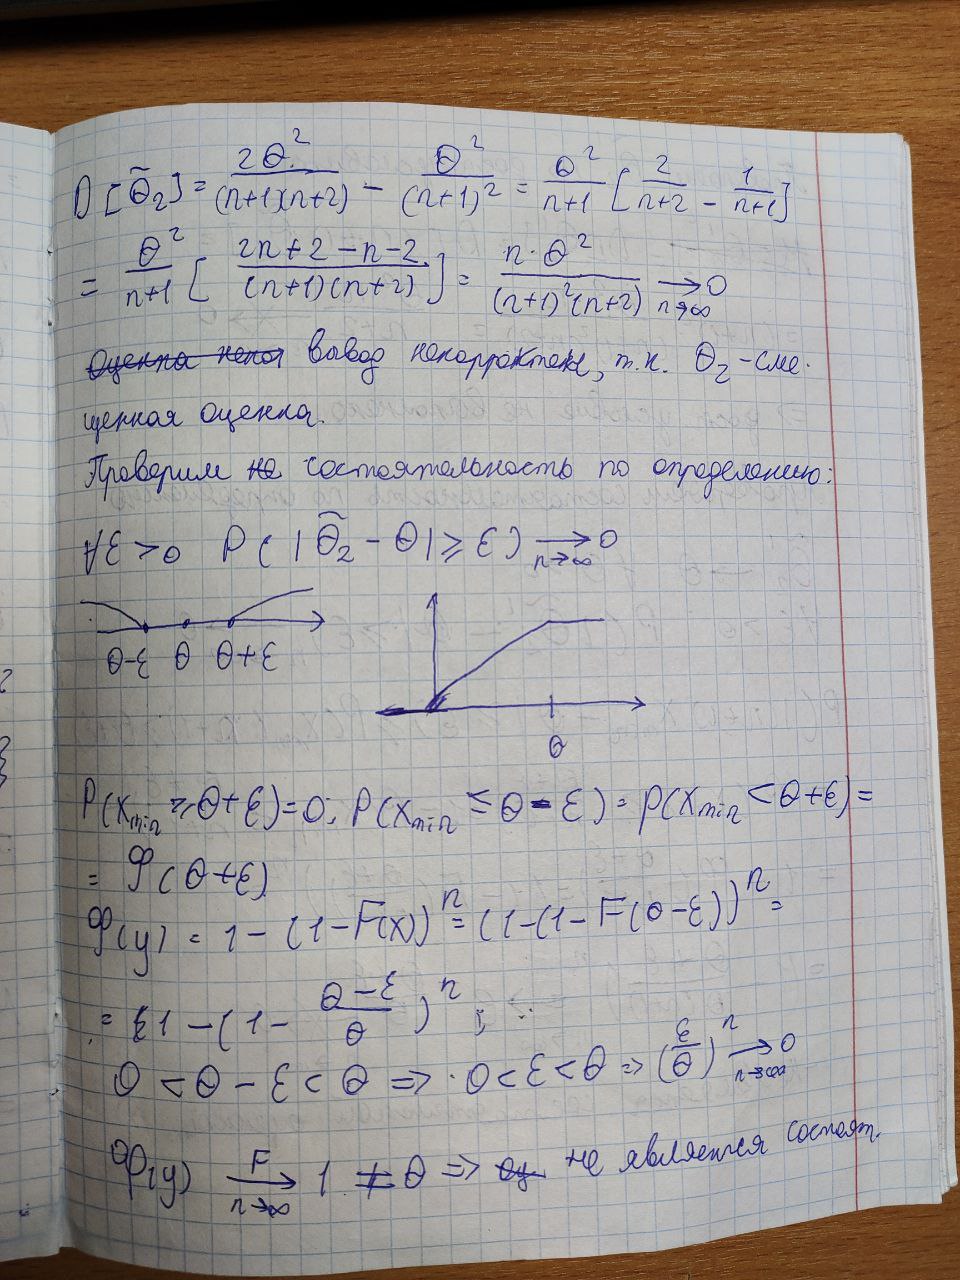 D[θ̃₂] = 2θ²/((n+1)(n+2)) − θ²/(n+1)² = θ²/(n+1) [2/(n+2) − 1/(n+1)]
= θ²/(n+1) [(2n+2−n−2)/((n+1)(n+2))] = n·θ²/((n+1)²(n+2)) →(n→∞) 0
вывод некорректен, т.к. θ₂ - сме-
щенная оценка.
Проверим состоятельность по определению:
∀ε>0 P(|θ̃₂ − θ| ≥ ε) →(n→∞) 0
θ-ε θ θ+ε
θ
P(x_min ≥ θ+ε) = 0; P(x_min ≤ θ − ε) = P(x_min < θ+ε) =
= φ(θ+ε)
φ(y) = 1 − (1−F(x))ⁿ = (1−(1−F(θ−ε))ⁿ =
= 1 − (1 − (θ−ε)/θ)ⁿ ;
0 < θ − ε < θ => 0 < ε < θ => (ε/θ)ⁿ →(n→∞) 0
φ(y) →F (n→∞) 1 ≠ θ => не является состоят.